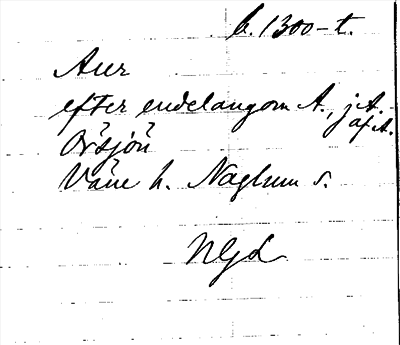 b. 1300-t.
Aur
efter endelangom A., j A.
af A.
Örsjön
Väne h. Naglum s.
NGd